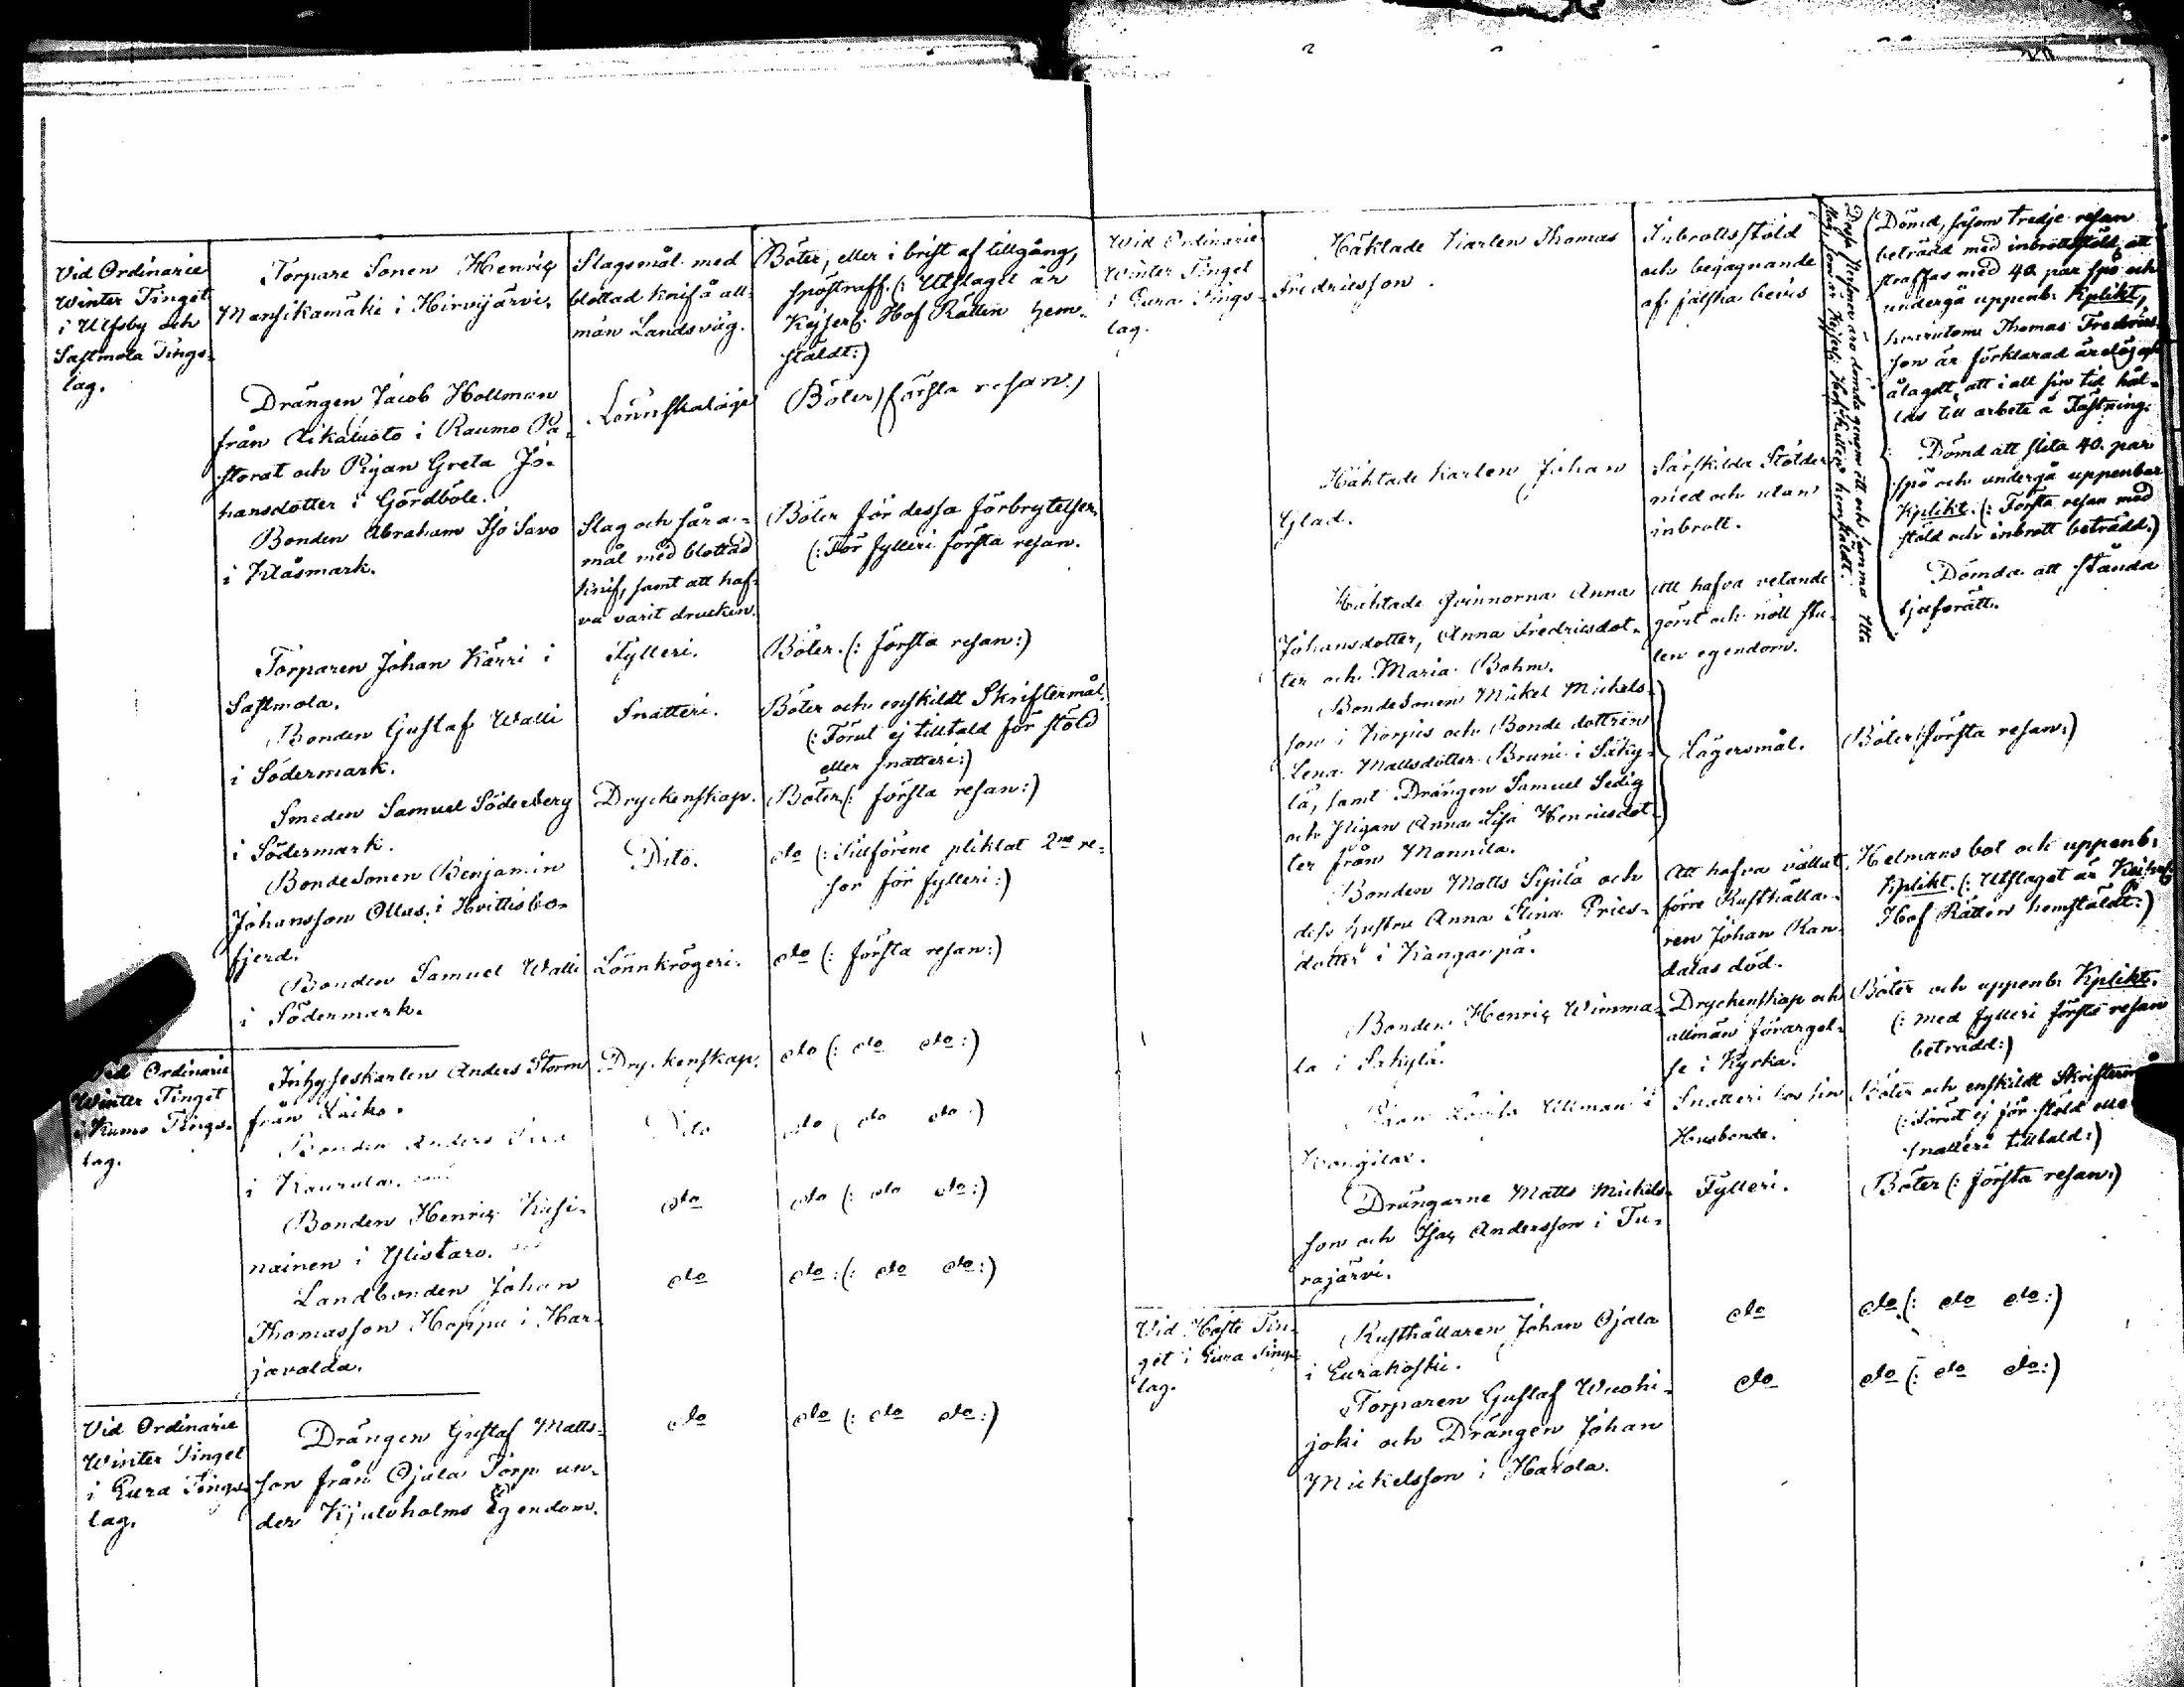 Vid Ordinarie
Winter Tinget
i Ulfsby och
Sastmola Tings-
lag.
Torpare Sonen Henric
Mansikamäki i Hirvijärvi.
Slagsmål med
blottad knif å all-
män Landsväg.
Böter, eller i brist af tillgång,
spöstraff. (: Utslaget är
Kejserl. Hof Rätten hem-
stäldt:)
Drängen Jacob Hollmen
från i Raumo Pa-
storat och Pigan Greta Jo-
hansdotter i Gördböle.
Lönnskaläge
Böter, första resan.)
Bonden Abraham Iso Savo
i Klåsmark.
Slag och såra-
mål med blottad
knif, samt att haf-
va varit drucken.
Böter för dessa förbrytelser.
(: För fylleri första resan.
Torparen Johan Kärri i
Sastmola.
Fylleri.
Böter. (: första resan:)
Bonden Gustaf Walli
i Södermark.
Snatteri.
Böter och enskildt Skriftermål.
(: Förut ej tilltald för stöld
eller snatteri:)
Smeden Samuel Söderberg
i Södermark.
Dryckenskap.
Böter (: första resan:)
Bondesonen Benjamin
Johansson Ollas i Hvittisbo-
fjerd.
Dito.
do (: Tillförene pliktat 2ne re-
sor för fylleri:)
Bonden Samuel Walli
i Södermark.
Lönnkrögeri.
do (: första resan:)
Vid Ordinarie
Winter Tinget
i Kumo Tings-
lag.
Inhyseskarlen Anders Storm
från
Dryckenskap.
do (: do do:)
Bonden Anders
i
Dito
do (: do do:)
Bonden Henric Kusi-
nainen i Ylistaro.
do
do (: do do:)
Landbonden Johan
Thomasson Hoppu i Har-
javalda.
do
do: (: do do:)
Vid Ordinarie
Winter Tinget
i Eura Tings-
lag.
Drängen Gustaf Matts-
son från Ojala Torp un-
der Kjuloholms Egendom.
do
do (: do do:)
Vid Ordinarie
Winter Tinget
i Eura Tings-
lag.
Häktade Karlen Thomas
Fredricsson.
Inbrottsstöld
och begagnande
af falska bevis
Dessa Personer äro dömda genom ett och samma Uts-
lag, som är Kejserl. Hof Rätten hemstäldt.
Dömd, såsom tredje resan
beträdd med inbrottsstöld, att
straffas med 40 par spö och
undergå uppenb: Kplikt,
hvarutom Thomas Fredrics-
son är förklarad ärelös och
ålagdt, att i all sin tid hål-
las till arbete å Fästning.
Häktade karlen Johan
Glad.
Särskilda Stölder
med och utan
inbrott.
Dömd att slita 40 par
spö och undergå uppenbar
Kplikt. (: Första resan med
stöld och inbrott beträdd.)
Häktade Qvinnorna Anna
Johansdotter, Anna Fredricsdot-
ter och Maria Bohm.
Att hafva vetande
gömt och nött stu-
len egendom.
Dömda att stånda
tjufsrätt.
Bondesonen Mickel Mickels-
son i Korpis och Bonde dottren
Lena Mattsdotter Bruni i Säky-
lä, samt Drängen Samuel Sedig
och Pigan Anna Lisa Henricsdot-
ter från Mannila.
Lägersmål.
Böter (: första resan:)
Bonden Matts Sipilä och
dess hustru Anna Stina Prics-
dotter i Kangarpä.
Att hafva vållat
förre Rusthålla-
ren Johan Ran-
dalas död.
Helmans bot och uppenb:
Kplikt. (: Utslaget är Kejserl:
Hof Rätten hemstäldt:)
Bonden Henric Wimma-
la i Säkylä.
Dryckenskap och
allmän förargel-
se i Kyrka.
Böter och uppenb: Kplikt.
(: med fylleri första resan
beträdd:)
Ullman i
Snatteri hos sin
Husbonde.
Böter och enskildt Skrifterm
(: Förut ej för stöld eller
snatteri tilltald:)
Drängarne Matts Mickels-
son och Isac Andersson i Tu-
rajärvi.
Fylleri.
Böter (: första resan:)
Vid Höste Tin-
get i Eura Tings-
lag.
Rusthållaren Johan Ojala
i Eurakoski.
do
do (: do do:)
Torparen Gustaf Wuohi-
joki och Drängen Johan
Mickelsson i Harola.
do
do (: do do:)